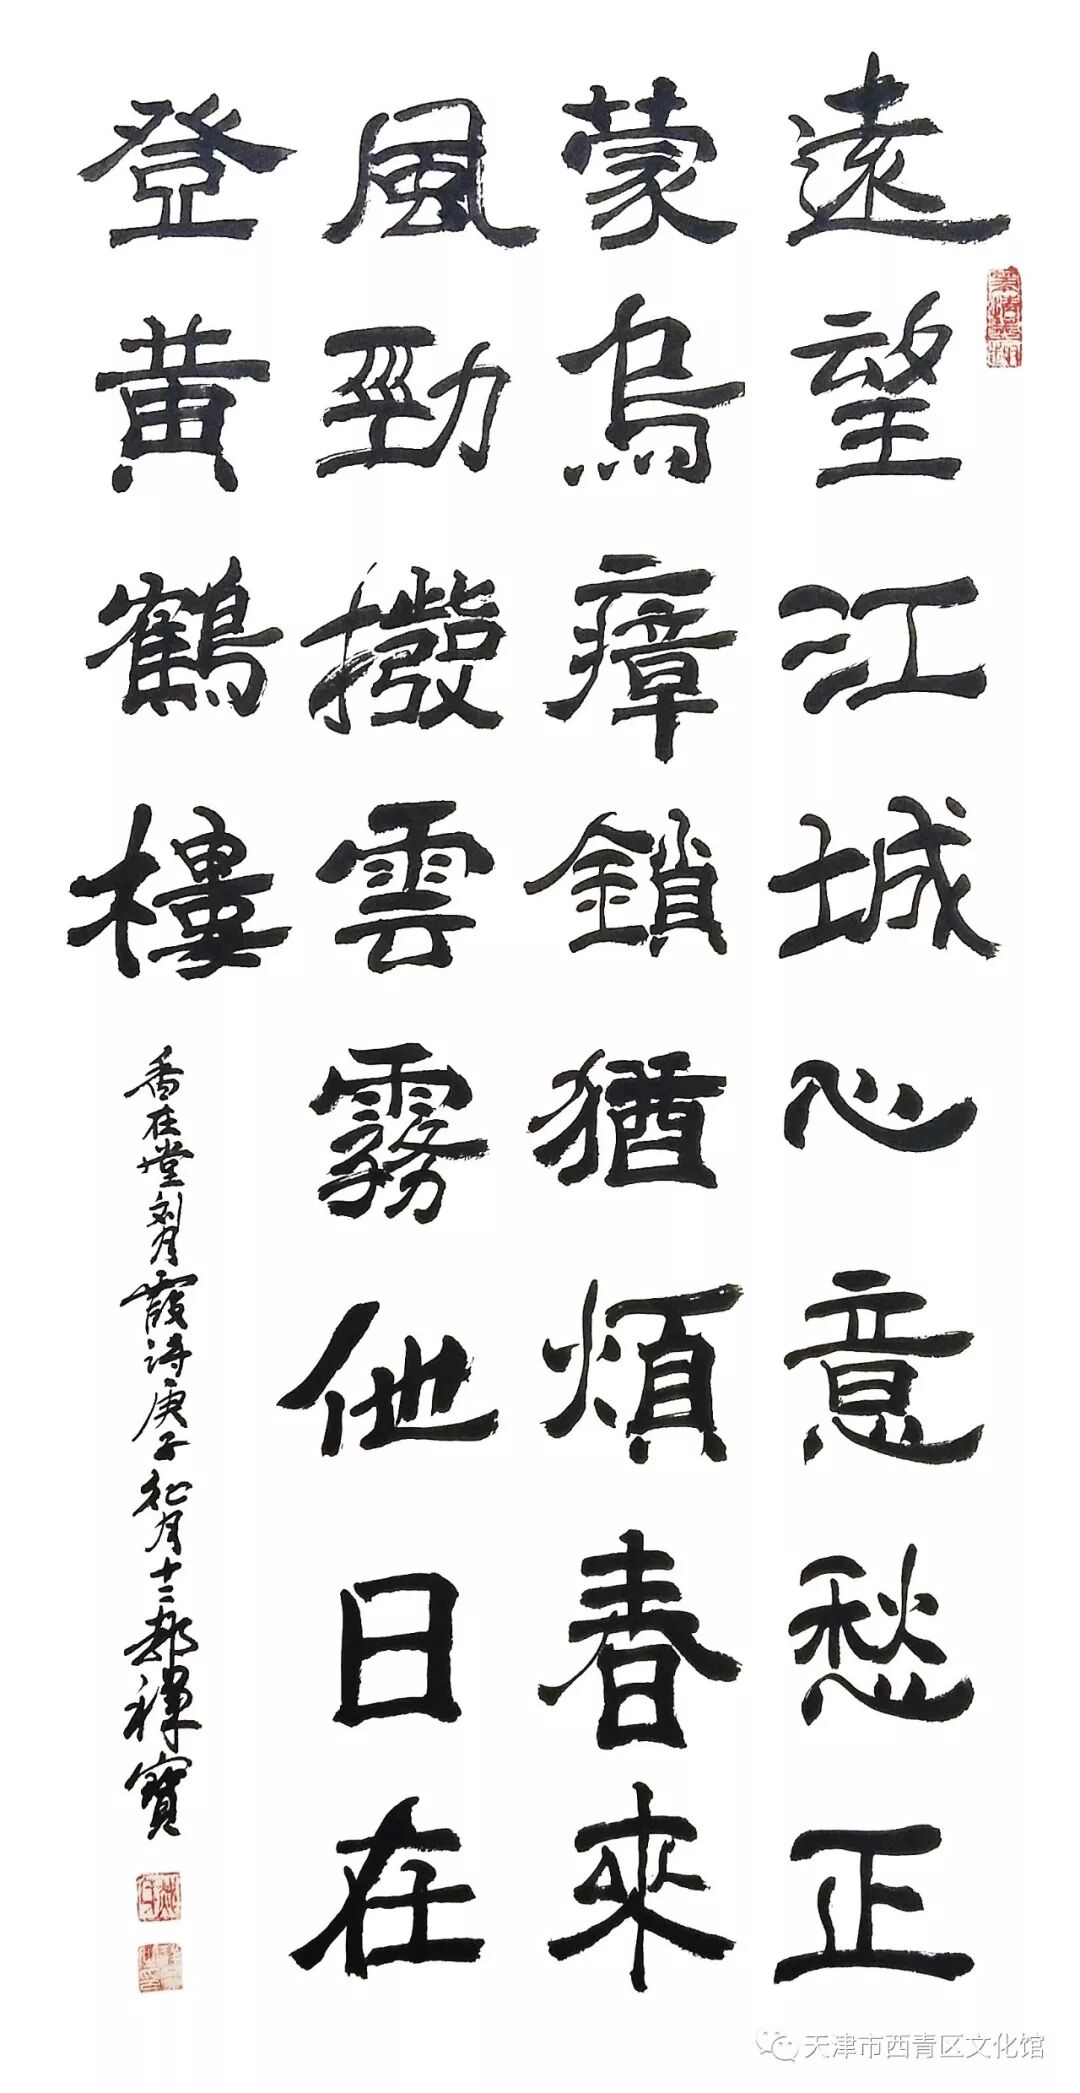 遠望江城心意愁正
蒙烏瘴鎖猶煩春來
風勁撥雲霧他日在
登黃鶴樓
香在堂刘月霞诗庚子征月十二郝禅寶
天津市西青区文化馆